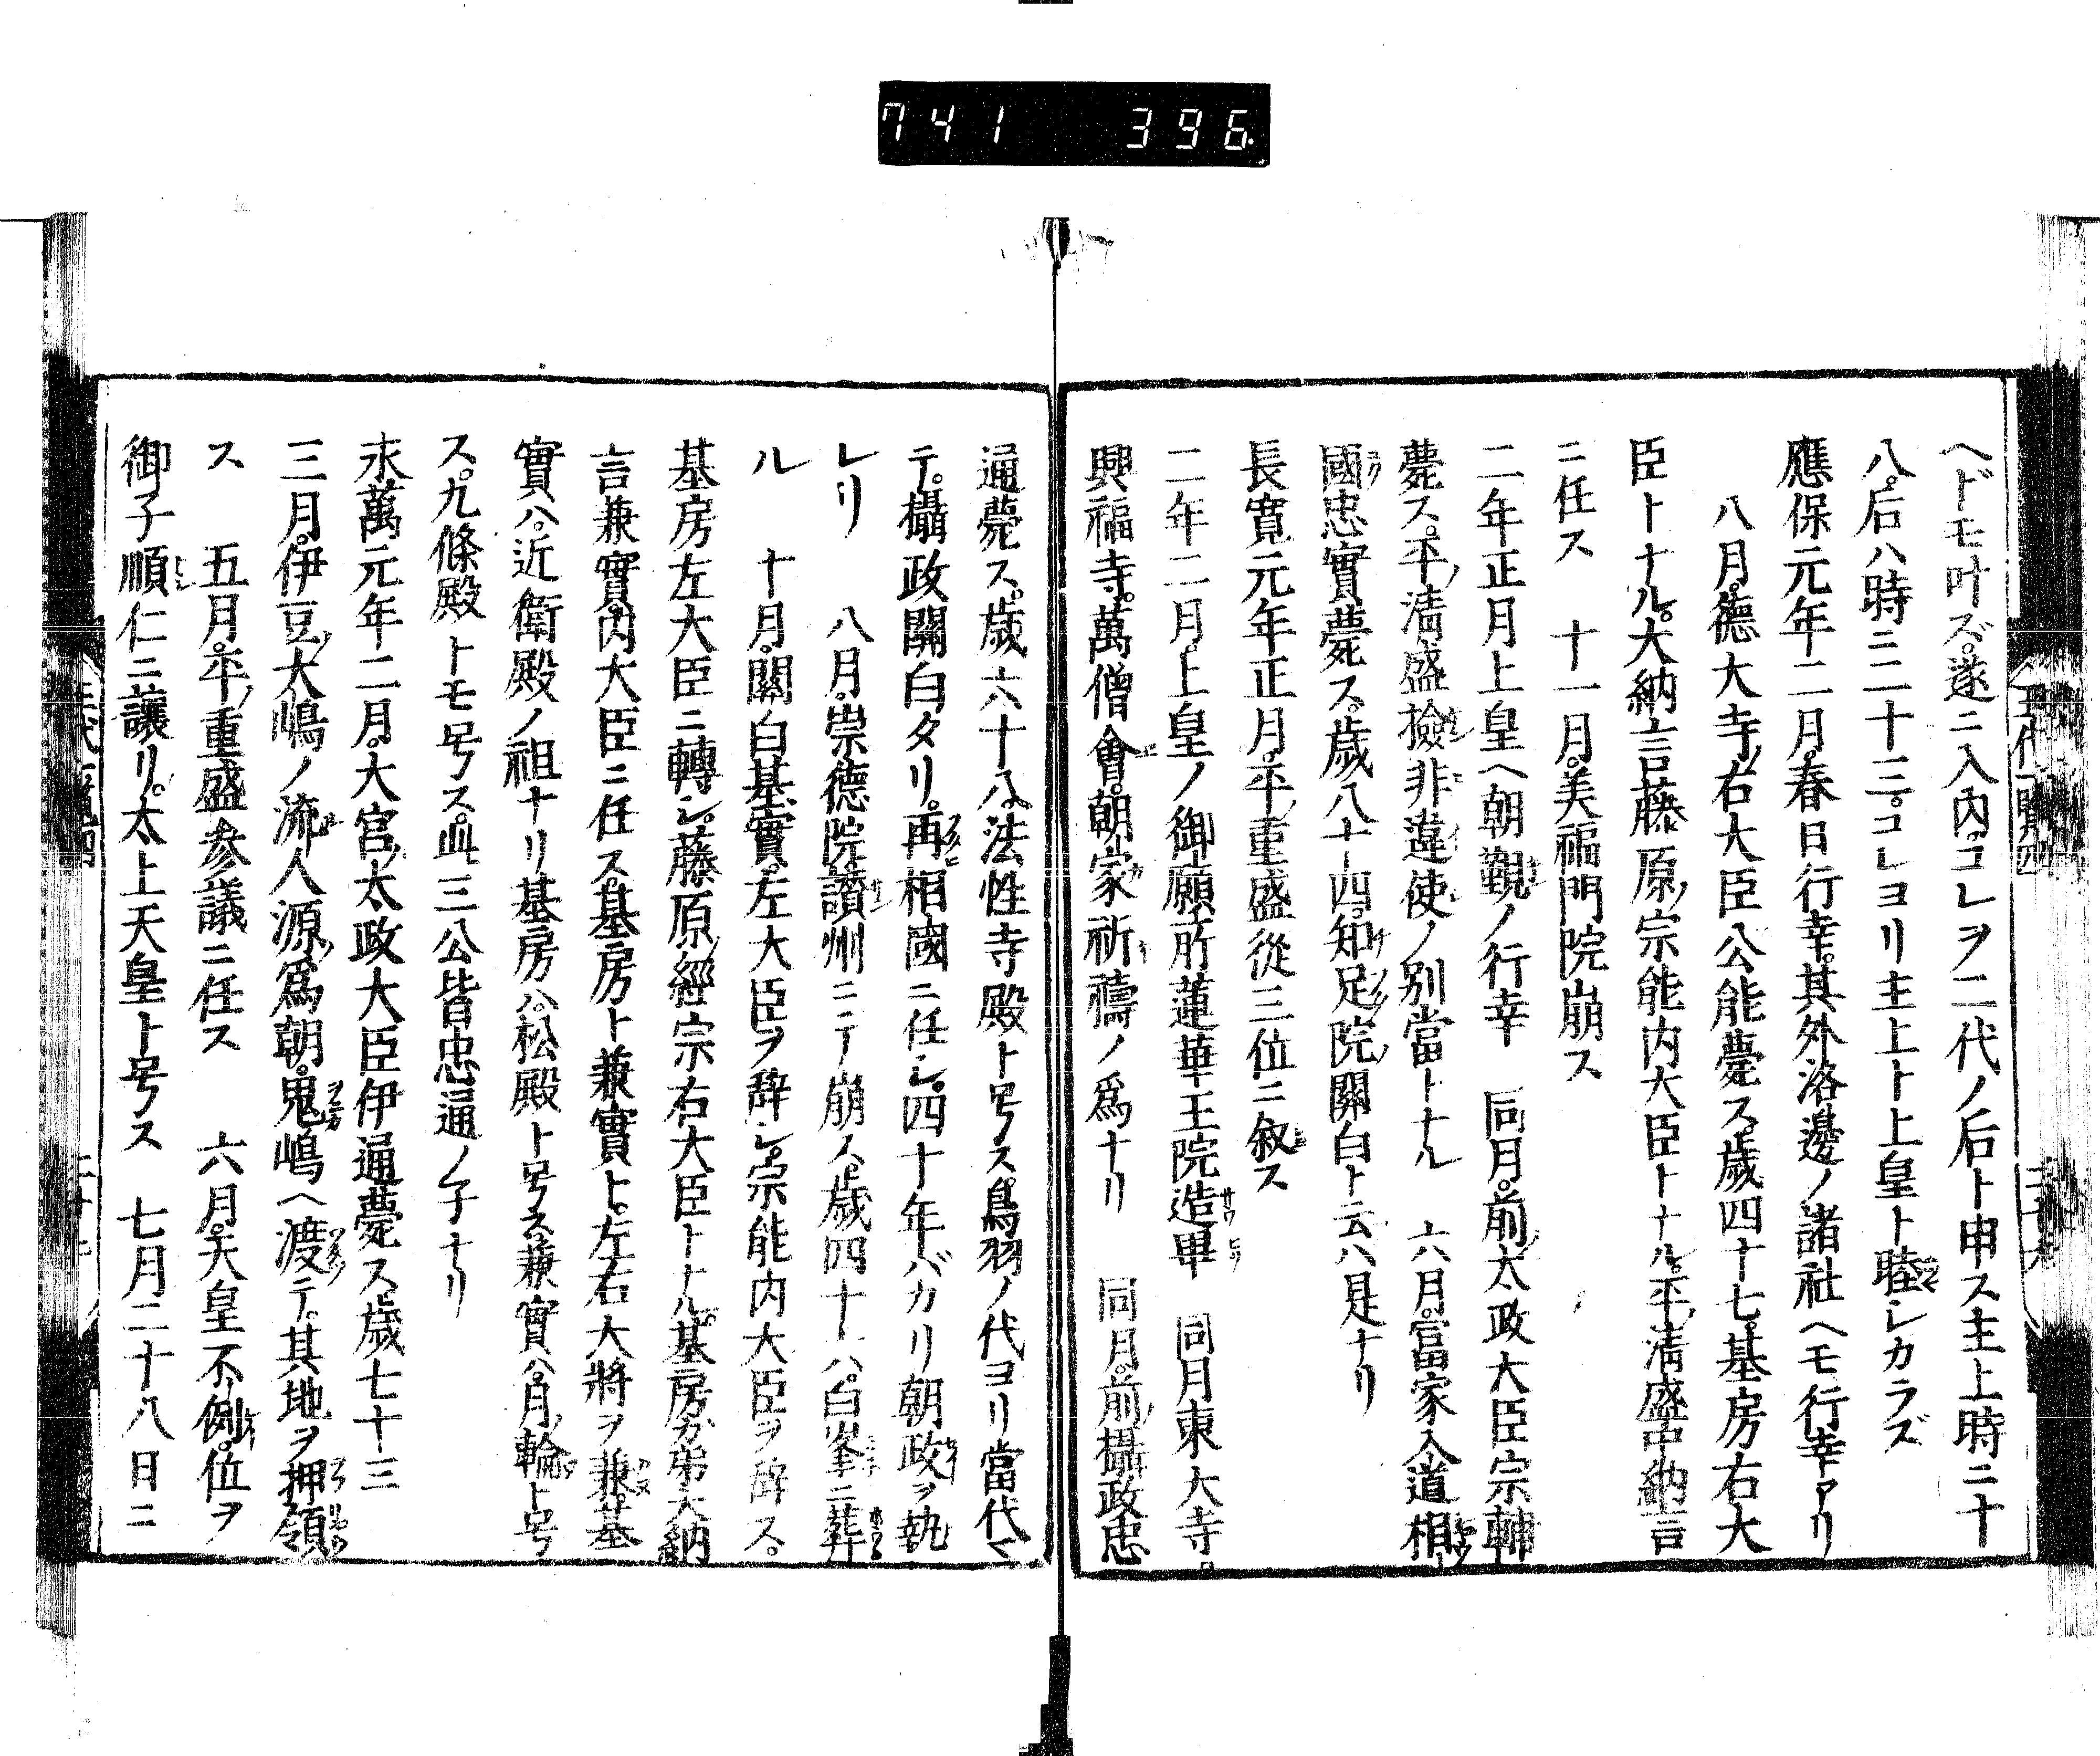 741 396
ヘドモ叶ズ。遂ニ入内。コレヲ二代ノ后ト申ス主上時ニ十
八。后ハ時ニ二十三。コレヨリ主上ト上皇ト睦シカラズ
應保元年二月。春日行幸。其外洛邊ノ諸社ヘモ行幸アリ
八月。德大寺右大臣公能薨ス。歳四十七。基房右大
臣トナル。大納言藤原ノ宗能内大臣トナル。平ノ清盛中納言
ニ任ス 十一月。美福門院崩ス
二年正月上皇ヘ朝覲ノ行幸 同月。前ノ太政大臣宗輔
薨ス。平ノ清盛撿非違使ノ別當トナル 六月。富家入道相
國忠實薨ス。歳八十四。知足院ノ關白ト云ハ是ナリ
長寛元年正月。平ノ重盛從三位ニ叙ス
二年二月。上皇ノ御願所蓮華王院造畢 同月東大寺。
興福寺。萬僧會。朝家祈禱ノ爲ナリ 同月。前ノ攝政忠
通薨ス。歳六十八。法性寺殿ト号ス。鳥羽ノ代ヨリ當代マ
テ。攝政關白タリ。再相國ニ任シ。四十年バカリ朝政ヲ執
レリ 八月。崇德院。讃州ニテ崩ス。歳四十八。白峯ニ葬
ル 十月。關白基實。左大臣ヲ辞シ。宗能内大臣ヲ辞ス。
基房左大臣ニ轉シ。藤原ノ經宗右大臣トナル。基房ガ弟大納
言兼實。内大臣ニ任ス。基房ト兼實ト。左右大將ヲ兼。基
實ハ。近衛殿ノ祖ナリ基房ハ。松殿ト号ス。兼實ハ。月ノ輪ト号
ス。九條殿トモ号ス。此三公皆忠通ノ子ナリ
永萬元年二月。大宮ノ太政大臣伊通薨ス。歳七十三
三月。伊豆ノ大嶋ノ流人源ノ爲朝。鬼嶋ヘ渡テ。其地ヲ押領
ス 五月。平ノ重盛参議ニ任ス 六月。天皇不例。位ヲ
御子順仁ニ讓リ。太上天皇ト号ス 七月二十八日ニ